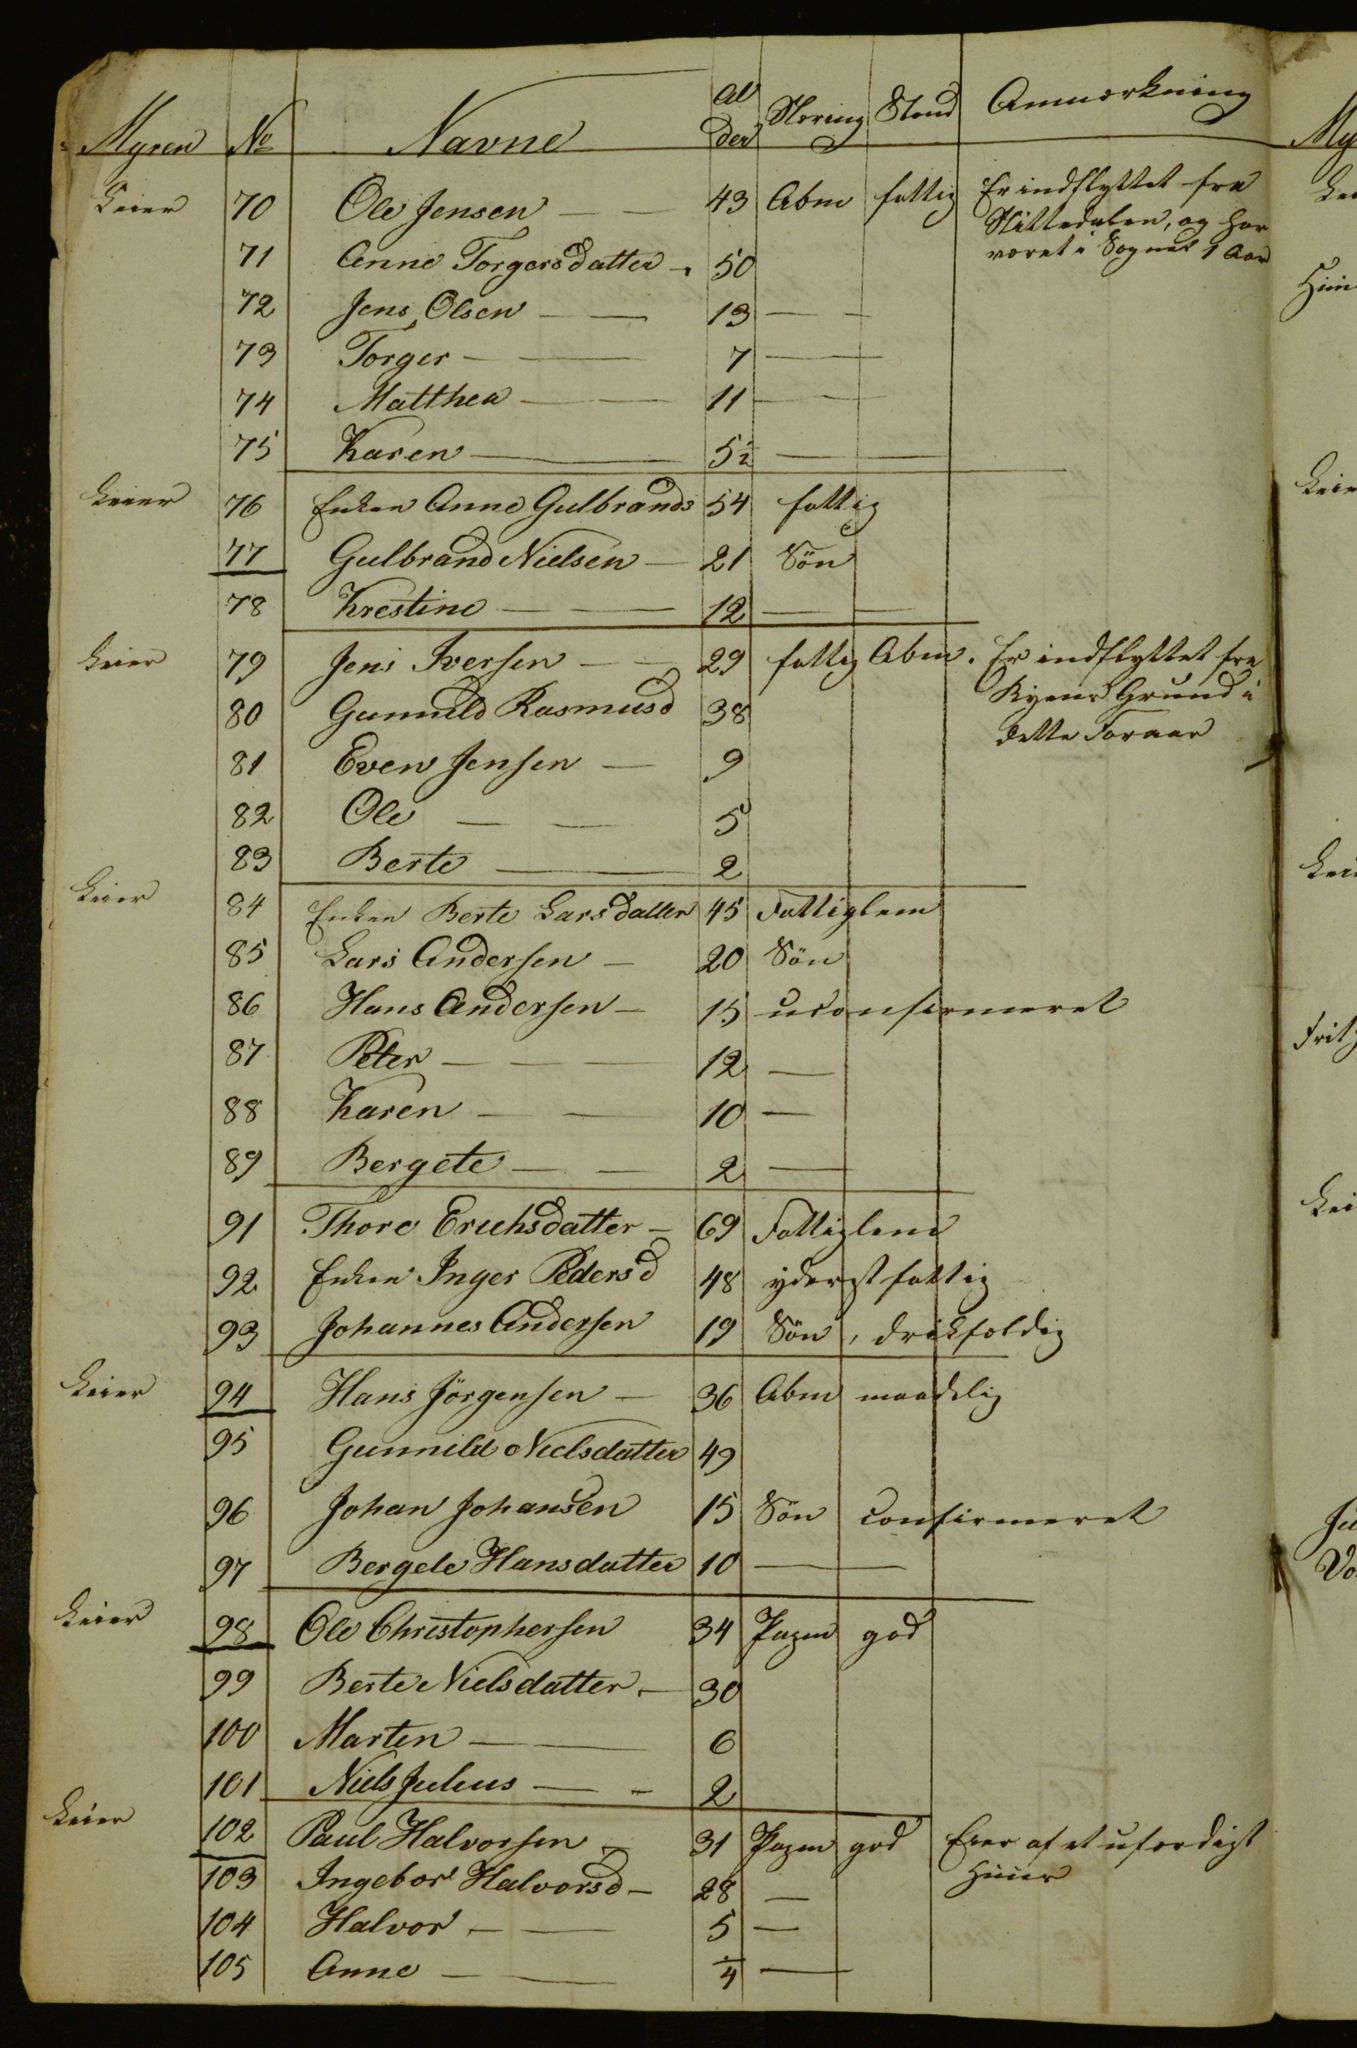 Myren No Navne Alder Næring Stand Anmærkning
Leier 70 Ole Jensen — — 43 Abm fattig Er indflyttet fra
Nittedalen, og har
været i Sognet 1 Aar
71 Anne Torgersdatter - 50
72 Jens Olsen — — 13 — —
73 Torger — — 7 — —
74 Matthea — — 11 — —
75 Karen — — 5½ — —
Leier 76 Enken Anne Gulbrands 54 fattig
77 Gulbrand Nielsen — 21 Søn
78 Krestine — — 12 — —
Leier 79 Jens Iversen — — 29 fattig Abm. Er indflyttet fra
Ryens Grund i
dette Foraar
80 Gunnild Rasmusd 38
81 Even Jensen — 9
82 Ole — — 5
83 Berte — — 2
Leier 84 Enken Berte Larsdatter 45 Fattiglem
85 Lars Andersen — 20 Søn
86 Hans Andersen — 15 uconfirmeret
87 Peter — — — 12 —
88 Karen — — 10 —
89 Bergete — — 2 —
91 Thore Erichsdatter — 69 Fattiglem
92 Enken Inger Pedersd 48 yderst fattig
93 Johannes Andersen 19 Søn, drikfoldig
Leier 94 Hans Jörgensen — 36 Abm maadelig
95 Gunnild Nielsdatter 49
96 Johan Johansen 15 Søn confirmeret
97 Bergete Hansdatter 10 —
Leier 98 Ole Christophersen 34 god
99 Berte Nielsdatter — 30
100 Marten — — 6
101 Niels Julius — - 2
Leier 102 Paul Halvorsen — 31 god Eier af et ufærdigt
Huus
103 Ingebor Halvorsd — 28 —
104 Halvor — — 5 —
105 Anne — — ¼ —